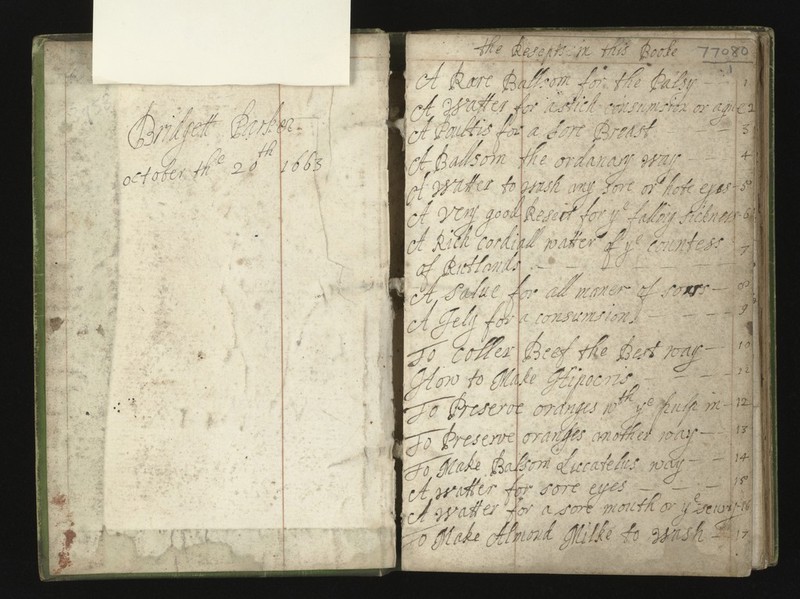 Bridgett Parker
october the 20th 1663
the Resepts in this Booke 77080
A Rare Ballsom for the Palsy 1
A Watter for a stich consumsion or ague 2
A Poultis for a sore Breast 3
A Ballsom the ordanary way 4
A Watter to wash any sore or hote eyes 5
A very good Reseit for ye falling sickness 6
A Rich cordiall watter of ye countess
of Rutlands 7
A salve for all maner of sorrs 8
A Jely for a consumsion 9
To coller Beef the Best way 10
How to Make Hipocris 11
To Preserve oranges wth ye pulp in 12
To Preserve oranges another way 13
To Make Balsom Luccatelus way 14
A watter for sore eyes 15
A watter for a sore mouth or ye scurvy 16
To Make Almond Milke to wash 17